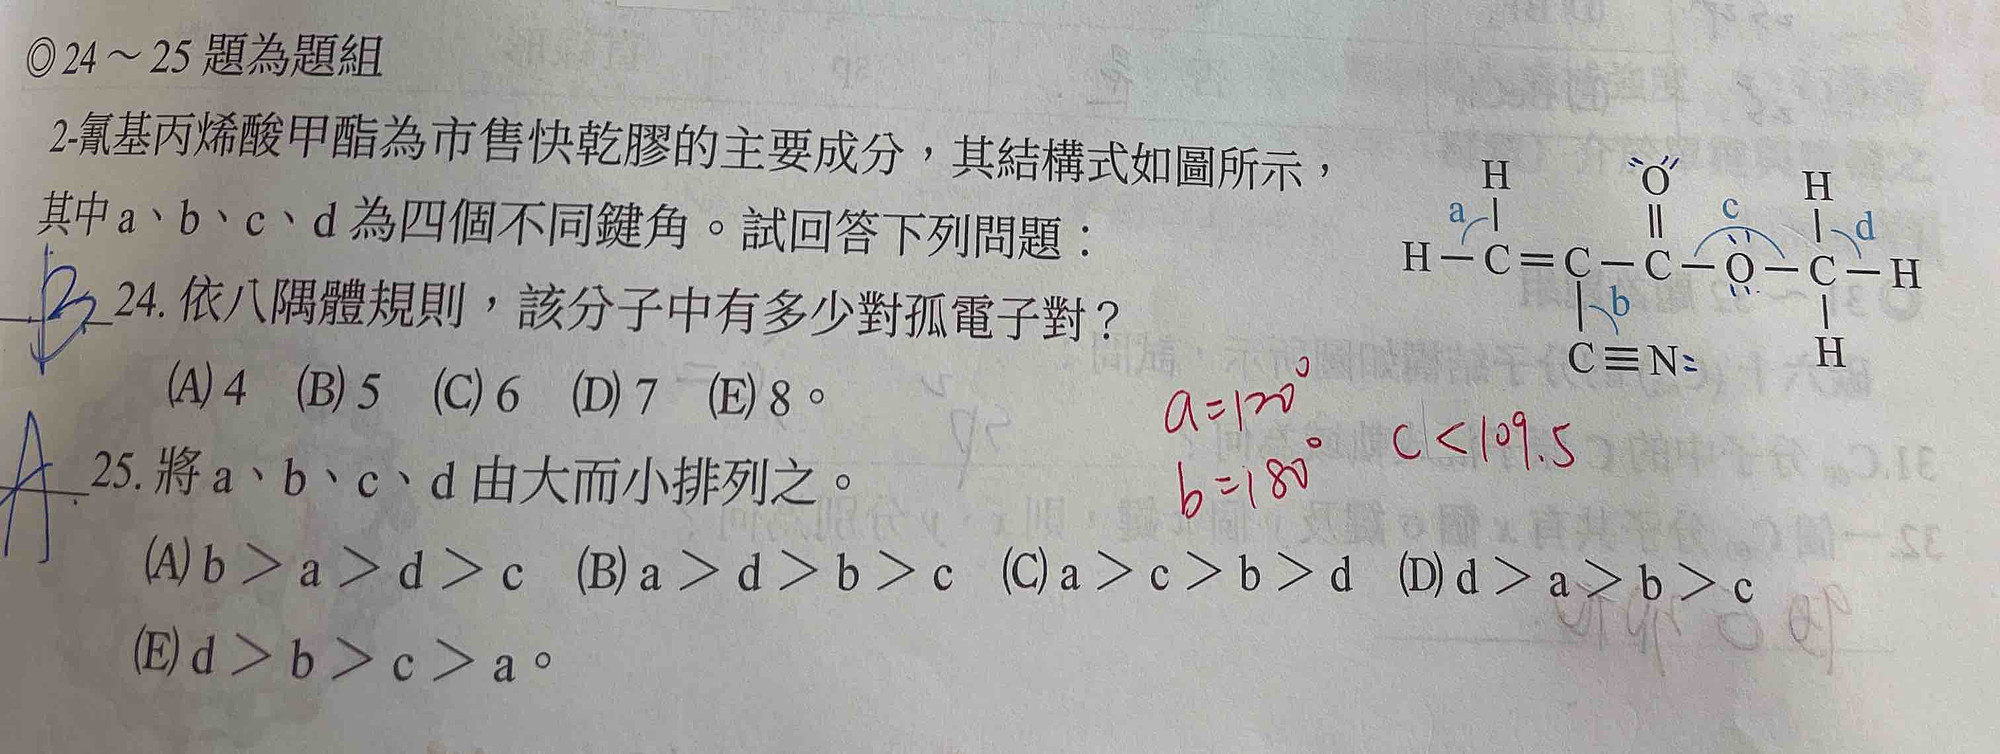 ◎24～25題為題組
2-氰基丙烯酸甲酯為市售快乾膠的主要成分，其結構式如圖所示，
其中a、b、c、d為四個不同鍵角。試回答下列問題：
B 24. 依八隅體規則，該分子中有多少對孤電子對？
(A) 4 (B) 5 (C) 6 (D) 7 (E) 8。
A 25. 將a、b、c、d由大而小排列之。
(A) b＞a＞d＞c (B) a＞d＞b＞c (C) a＞c＞b＞d (D) d＞a＞b＞c
(E) d＞b＞c＞a。
H O H
a c d
H－C＝C－C－O－C－H
b
C≡N H
a=120°
b=180°
c<109.5